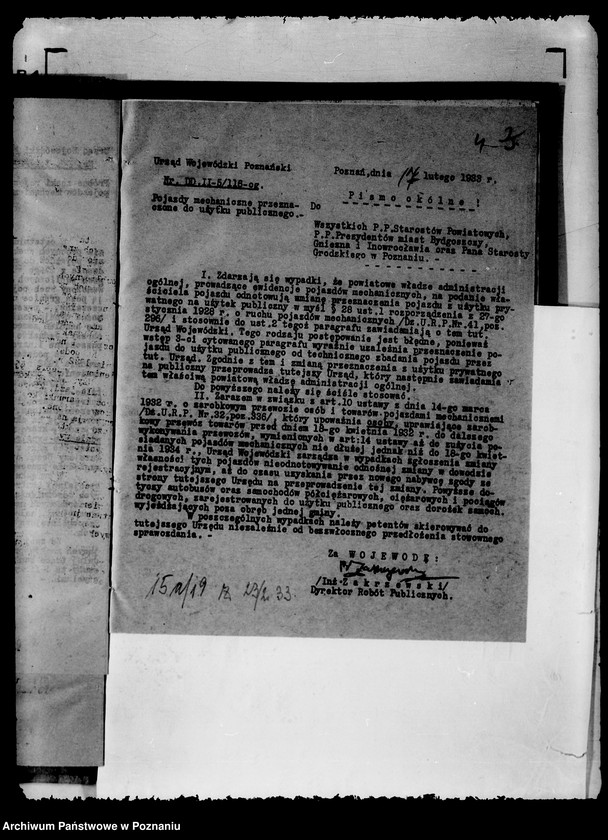 Urząd Wojewódzki Poznański
Nr. DD.II-5/118-og.
Pojazdy mechaniczne przezna-
czone do użytku publicznego.-
Poznań,dnia 17 lutego 1933 r.
Pismo okólne !
Do
Wszystkich P.P.Starostów Powiatowych,
P.P.Prezydentów miast Bydgoszczy,
Gniezna i Inowrocławia oraz Pana Starosty
Grodzkiego w Poznaniu.
I. Zdarzają się wypadki, że powiatowe władze administracji
ogólnej, prowadzące ewidencje pojazdów mechanicznych, na podanie wła-
ściciela pojazdu odnotowują zmianę przeznaczenia pojazdu z użytku pry-
watnego na użytek publiczny w myśl § 28 ust.1 rozporządzenia z 27-go
stycznia 1928 r. o ruchu pojazdów mechanicznych /Dz.U.R.P.Nr.41,poz.
396/ i stosownie do ust.2 tegoż paragrafu zawiadamiają o tem tut.
Urząd Wojewódzki. Tego rodzaju postępowanie jest błędne, ponieważ
wstęp 3-ci cytowanego paragrafu wyraźnie uzależnia przeznaczenie po-
jazdu do użytku publicznego od technicznego zbadania pojazdu przez
tut. Urząd. Zgodnie z tem i zmianą przeznaczenia z użytku prywatnego
na publiczny przeprowadza tutejszy Urząd, który następnie zawiadania
o tem właściwą powiatową władzę administracji ogólnej.
Do powyższego należy się ściśle stosować.
II. Zarazem w związku z art.10 ustawy z dnia 14-go marca
1932 r. o zarobkowym przewozie osób i towarów pojazdami mechanicznemi
/Dz.U.R.P. Nr.32,poz.336/, który upoważnia osoby, uprawiające zarob-
kowy przewóz towarów przed dniem 18-go kwietnia 1932 r. do dalszego
wykonywania przewozów, wymienionych w art:14 ustawy aż do zużycia po-
siadanych pojazdów mechanicznych nie dłużej jednak niż do 18-go kwiet-
nia 1934 r., Urząd Wojewódzki zarządza w wypadkach zgłoszenia zmiany
własności tych pojazdów nieodnotowywanie odnośnej zmiany w dowodzie
rejestracyjnym, aż do czasu uzyskania przez nowego nabywcę zgody ze
strony tutejszego Urzędu na przeprowadzenie tej zmiany. Powyższe do-
tyczy autobusów oraz samochodów półciężarowych, ciężarowych i pociągów
drogowych, zarejestrowanych do użytku publicznego oraz dorożek samoch.
wyjeżdżających poza obręb jednej gminy.
W poszczególnych wypadkach należy petentów skierowywać do
tutejszego Urzędu niezależnie od bezzwłocznego przedłożenia stosownego
sprawozdania. -
Za WOJEWODĘ:
/Inż.Zakrzewski/
Dyrektor Robót Publicznych.
Archiwum Państwowe w Poznaniu